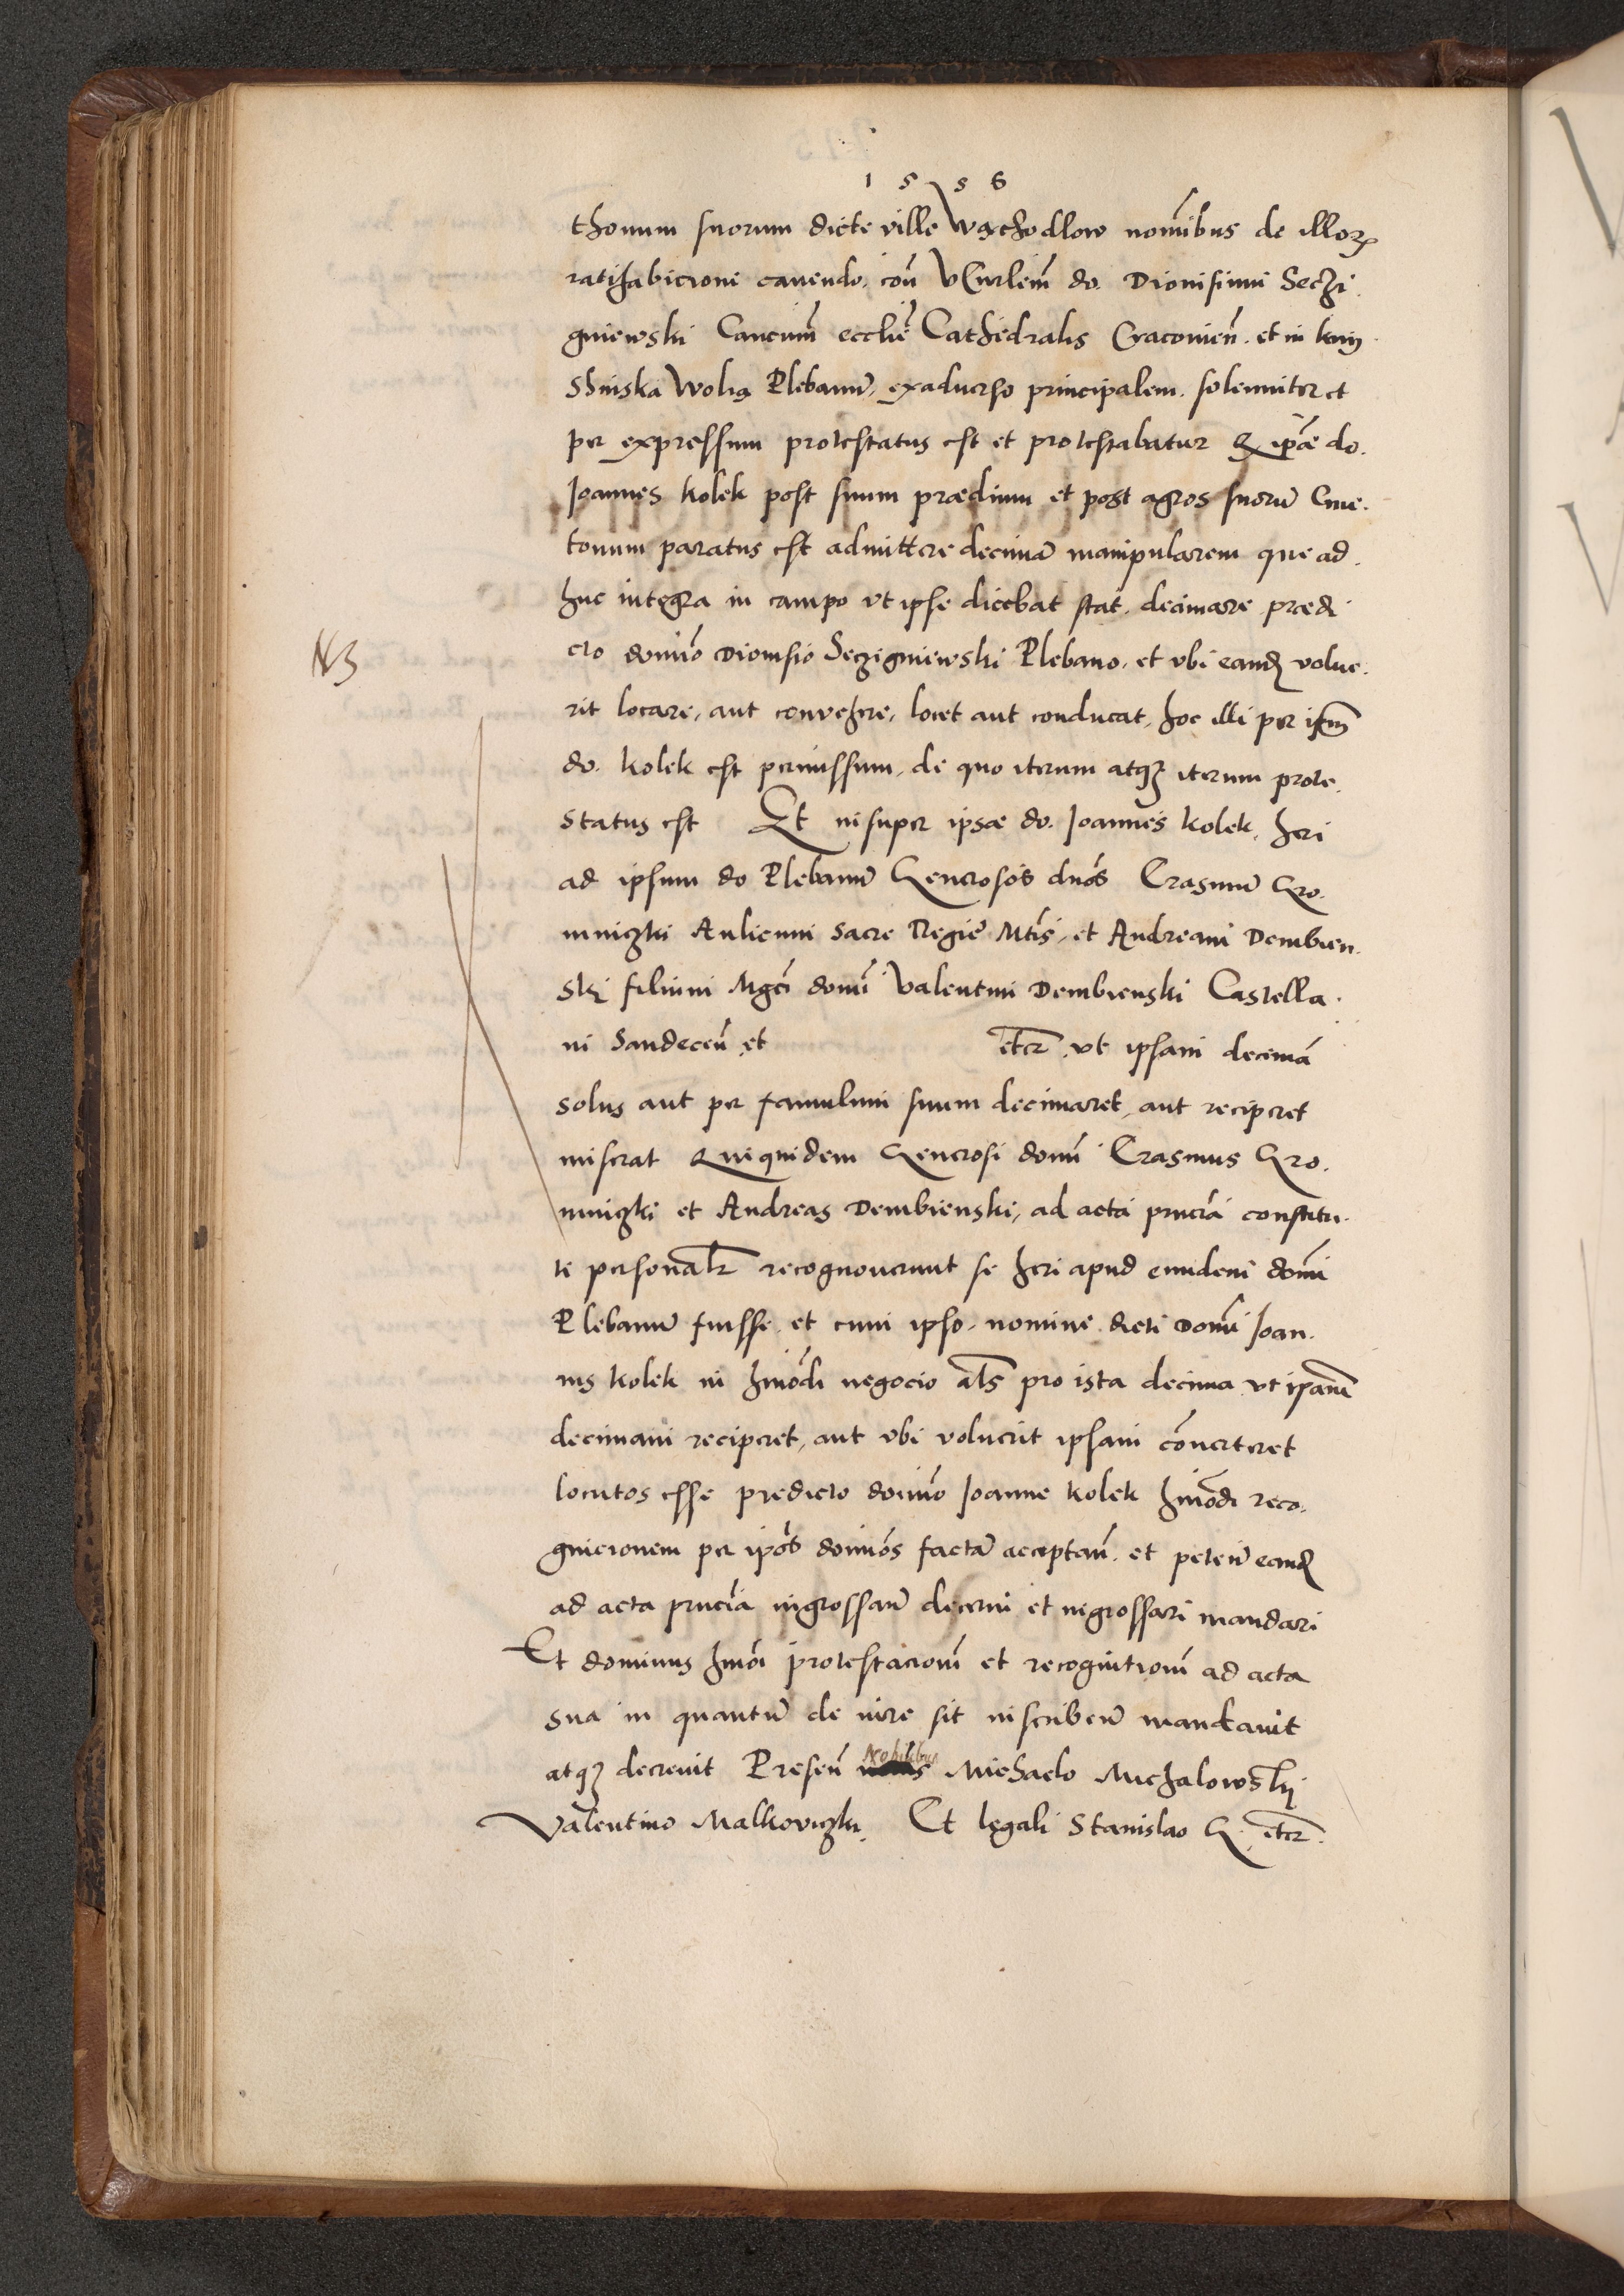 1 5 5 6
thonum suorum dicte ville Wąchodlow nomībus de illorꝝ
ratihabicione cavendo. con̄ vCurlem̄ do. Dionisium Seczi
gniewski Canciim̄ ecclīe Cathedralis Cracovień. et in kxiy
Shinska Wolia Plebanū, exaduerso principalem. solenniter et
per expressum protestatus est et protestabatur Q ip̄æ do.
Joannes Kolek post suum prædium et post agros suorū Cme.
tonum paratus est admittere decimā manipularem que ad.
huc integra in campo vt ipse dicebat stat. decimare prædi
cto domīo Dionisio Seczigniewski Plebano. et vbi eandꝫ volue.
rit locare, aut convehere, locet aut conducat, hoc illi per ip̄m
do. Kolek est permissum, de quo iterum atqꝫ iterum prote.
status est Et insuper ipsæ do. Joannes Kolek. heri
ad ipsum do Plebanū Generosos dn̄os Erasmū Gro.
mniczki Aulicum Sacre Regie Mt̄is, et Andream Dembien.
ski filium Mgc̄i domī Valentini Dembienski Castella.
ni Sandecen̄. et etcꝛ. vt ipsam decimā
solus aut per famulum suum decimaret, aut reciperet
miserat Quiquidem Generosi domī Erasmus Gro.
mniczki et Andreas Dembienski, ad acta pn̄cia constitu.
ti personalꝛ recognoverunt se heri apud eundem domī
Plebanū fuisse. et cum ipso. nomine dicti Domī Joan.
nis Kolek in hmōdi negocio al̄s pro ista decima vt ip̄am
decimam reciperet, aut vbi voluerit ipsam cōverteret
locutos esse predicto domīo Joanne Kolek hmōdi reco.
gnicionem per ip̄os domīos factā acceptan̄. et peteń eandꝫ
ad acta pn̄cia ingrossanꝰ decerni et ingrossari mandari
Et dominus hmōi protestacionē et recognitionē ad acta
sua in quantū de iure sit inscribenꝰ mandavit
atqꝫ decrevit Presen̄ Nobilibus Michaelo Michalowskij
Valentino Malkoviczki. Et legali Stanislao G. etcꝛ.
NB